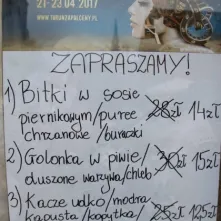 21-23.04.2017
ZAPRASZAMY!
1) Bitki w sosie
piernikowym/puree 28zł 14zł
chrzanowe /buraczki
2) Golonka w piwie/ 30zł 15zł
duszone warzywa/chleb
3) Kacze udko/modra
kapusta/kopytka/ 25zł 12,5zł